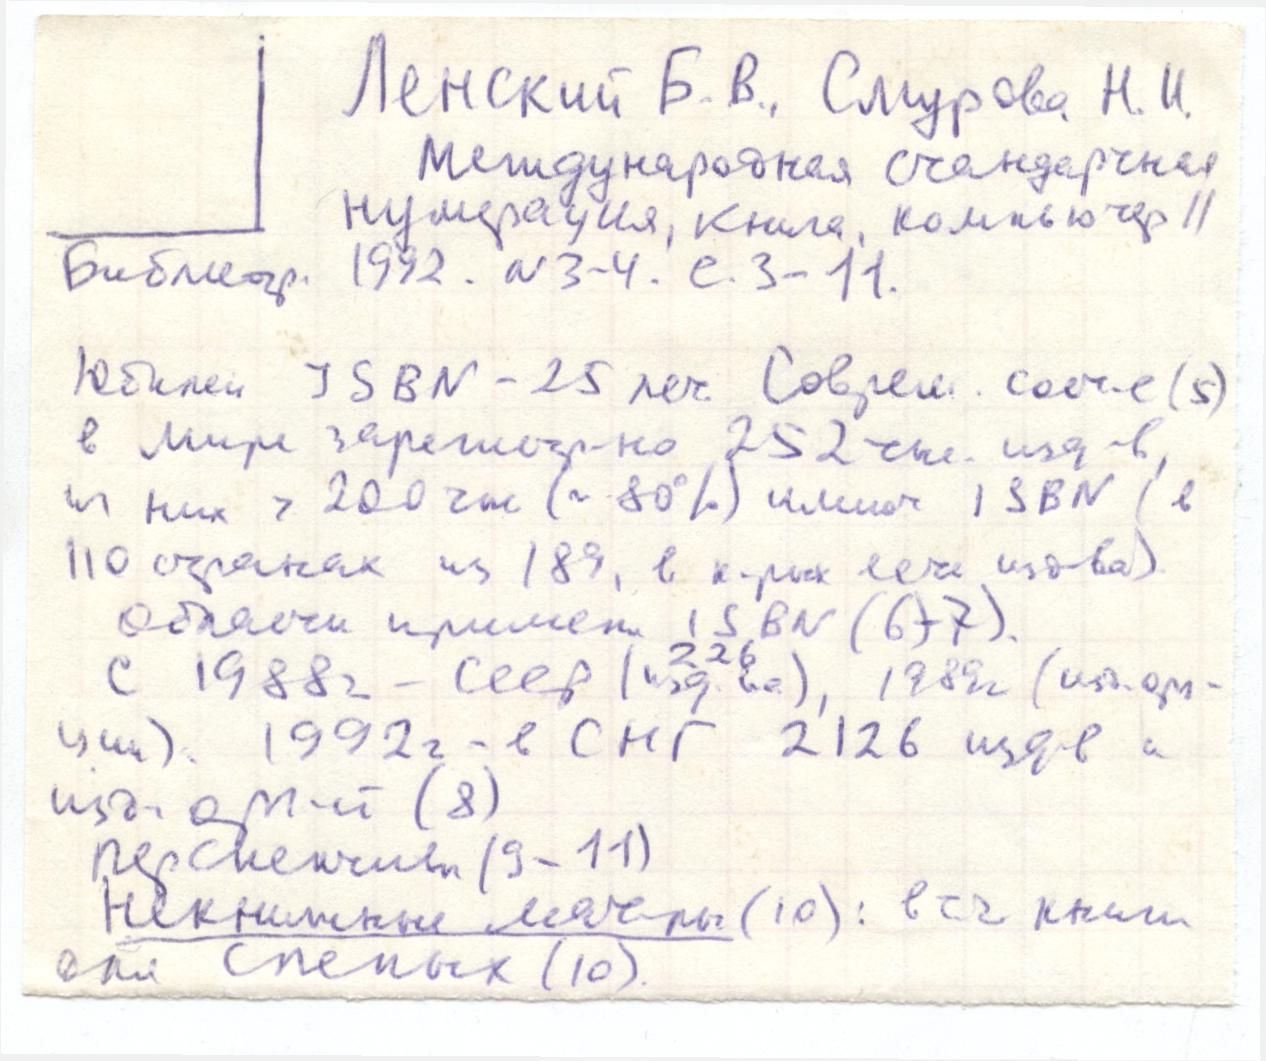 Ленский Б.В., Смурова Н.И.
Международная стандартная
нумерация, книга, компьютер //
Библиогр. 1992. N 3-4. С. 3-11.
Юбилей ISBN - 25 лет. Соврем. сост-е (5)
в мире зарегистр-но 252 тыс. изд-в,
из них > 200 тыс (~ 80%) имеют ISBN (в
110 странах из 189, в к-рых есть изд-ва).
Области примен. ISBN (6-7).
С 1988г - СССР (226 изд-ва), 1989г (изд. орг-
ции). 1992г - в СНГ 2126 изд-в и
изд. орг-й (8)
Перспективы (9-11)
Некнижные мат-лы (10): в т.ч. книги
для слепых (10).